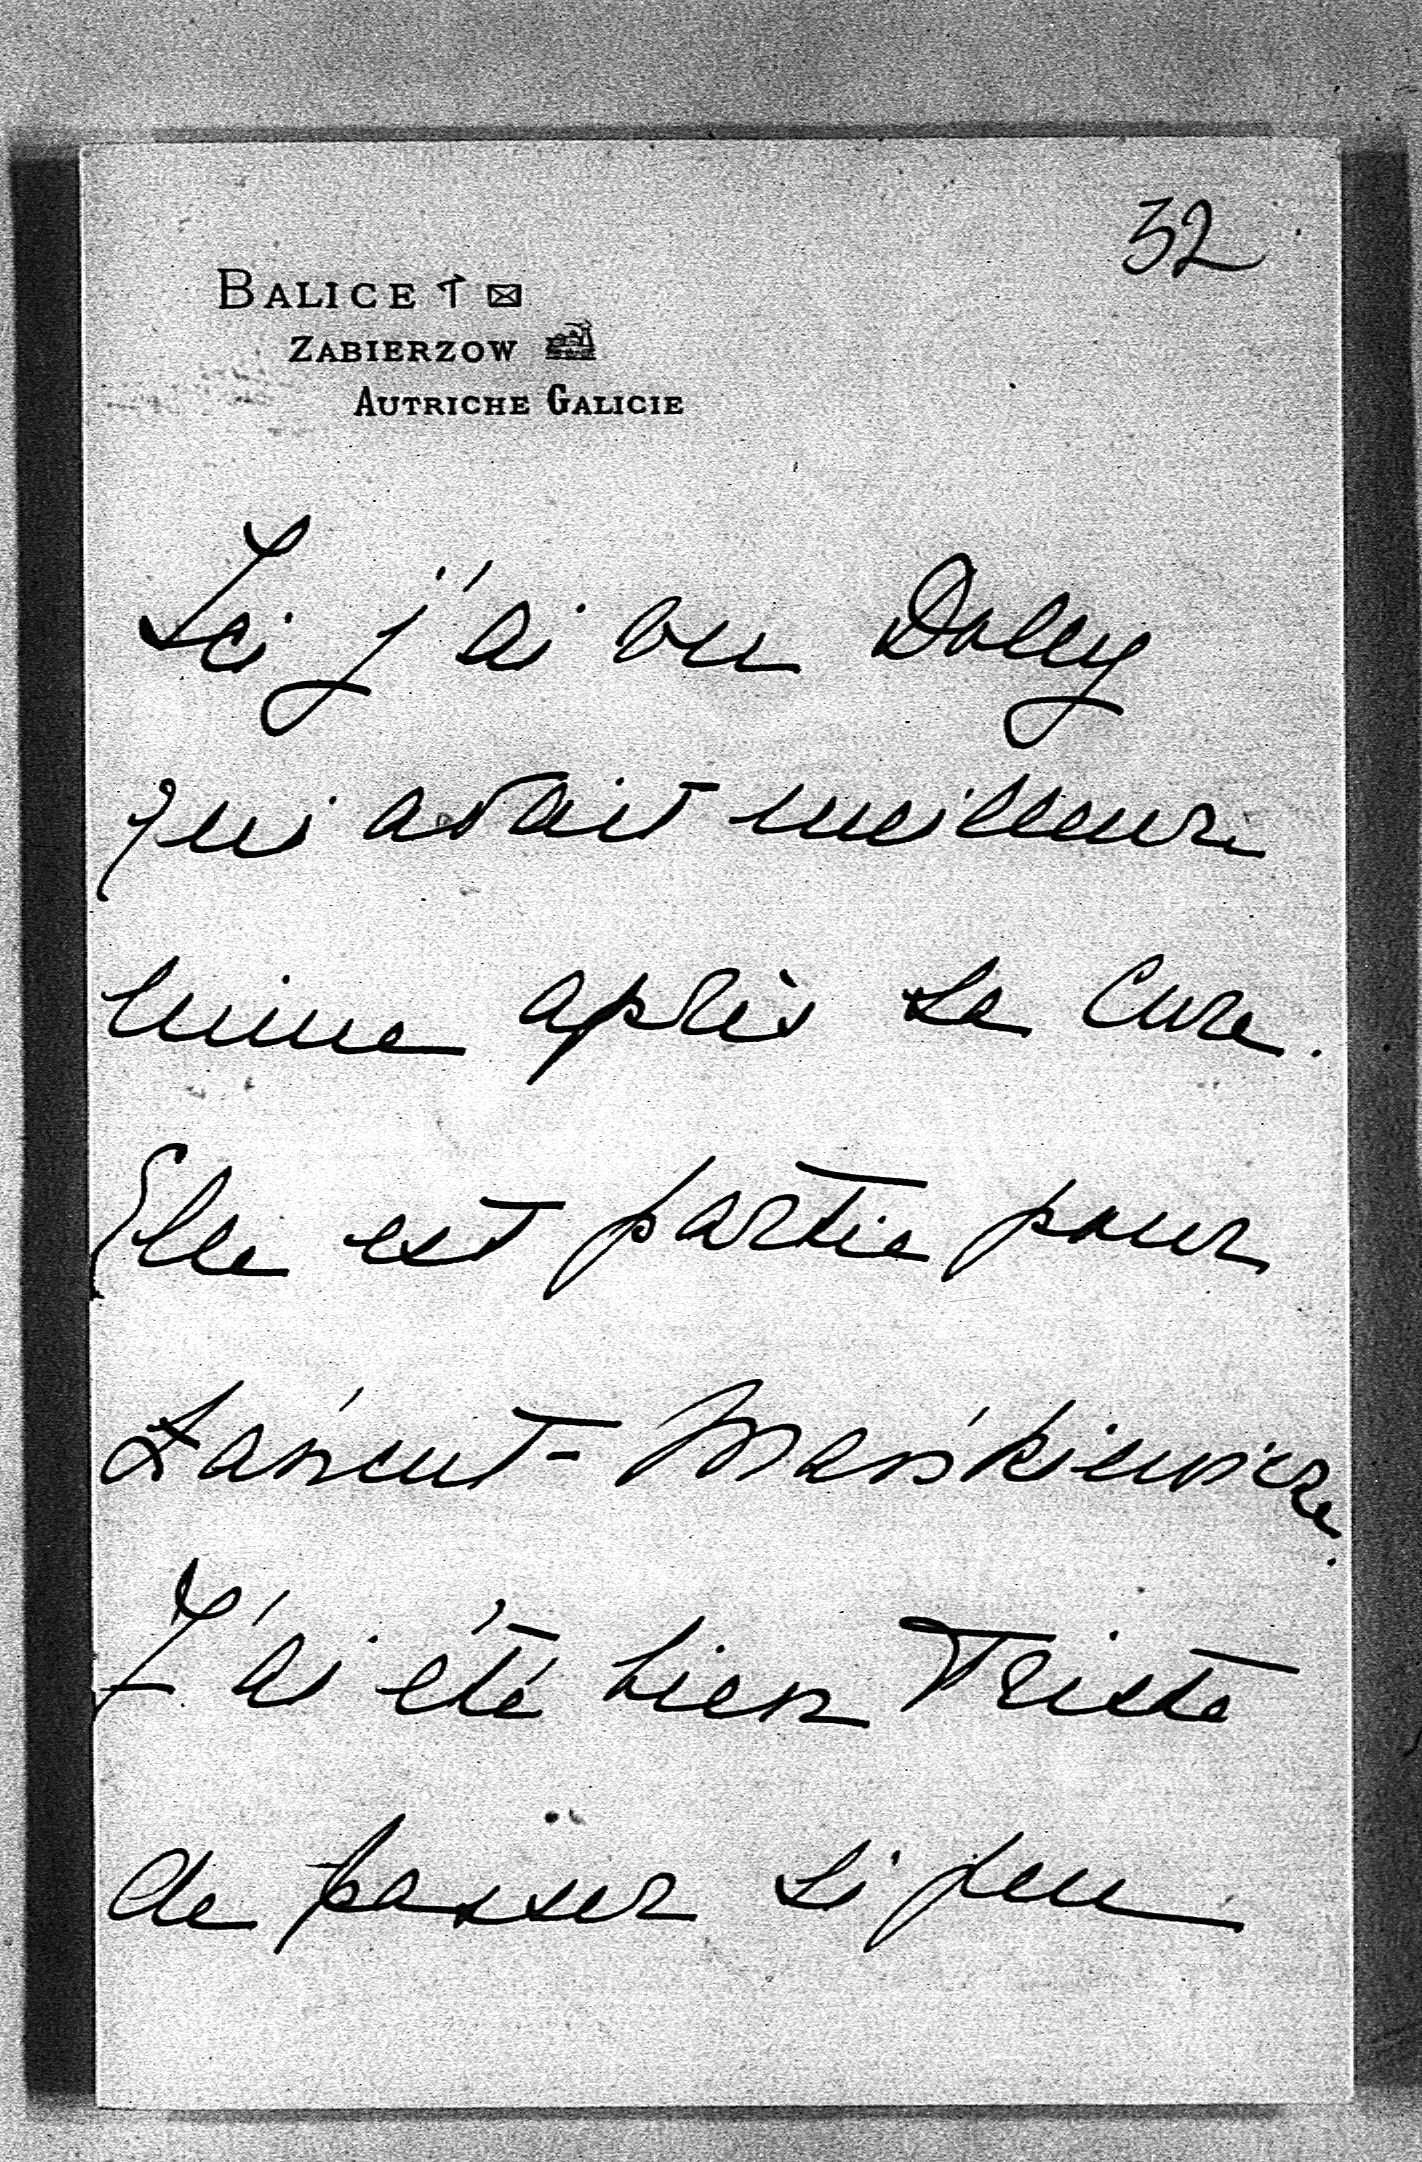 32
BALICE
ZABIERZOW
AUTRICHE GALICIE
Ici j'ai vu Dolly
qui avait meilleure
mine après sa cure.
Elle est partie pour
Łańcut - Mańkiewicze.
J'ai été bien triste
de passer si peu